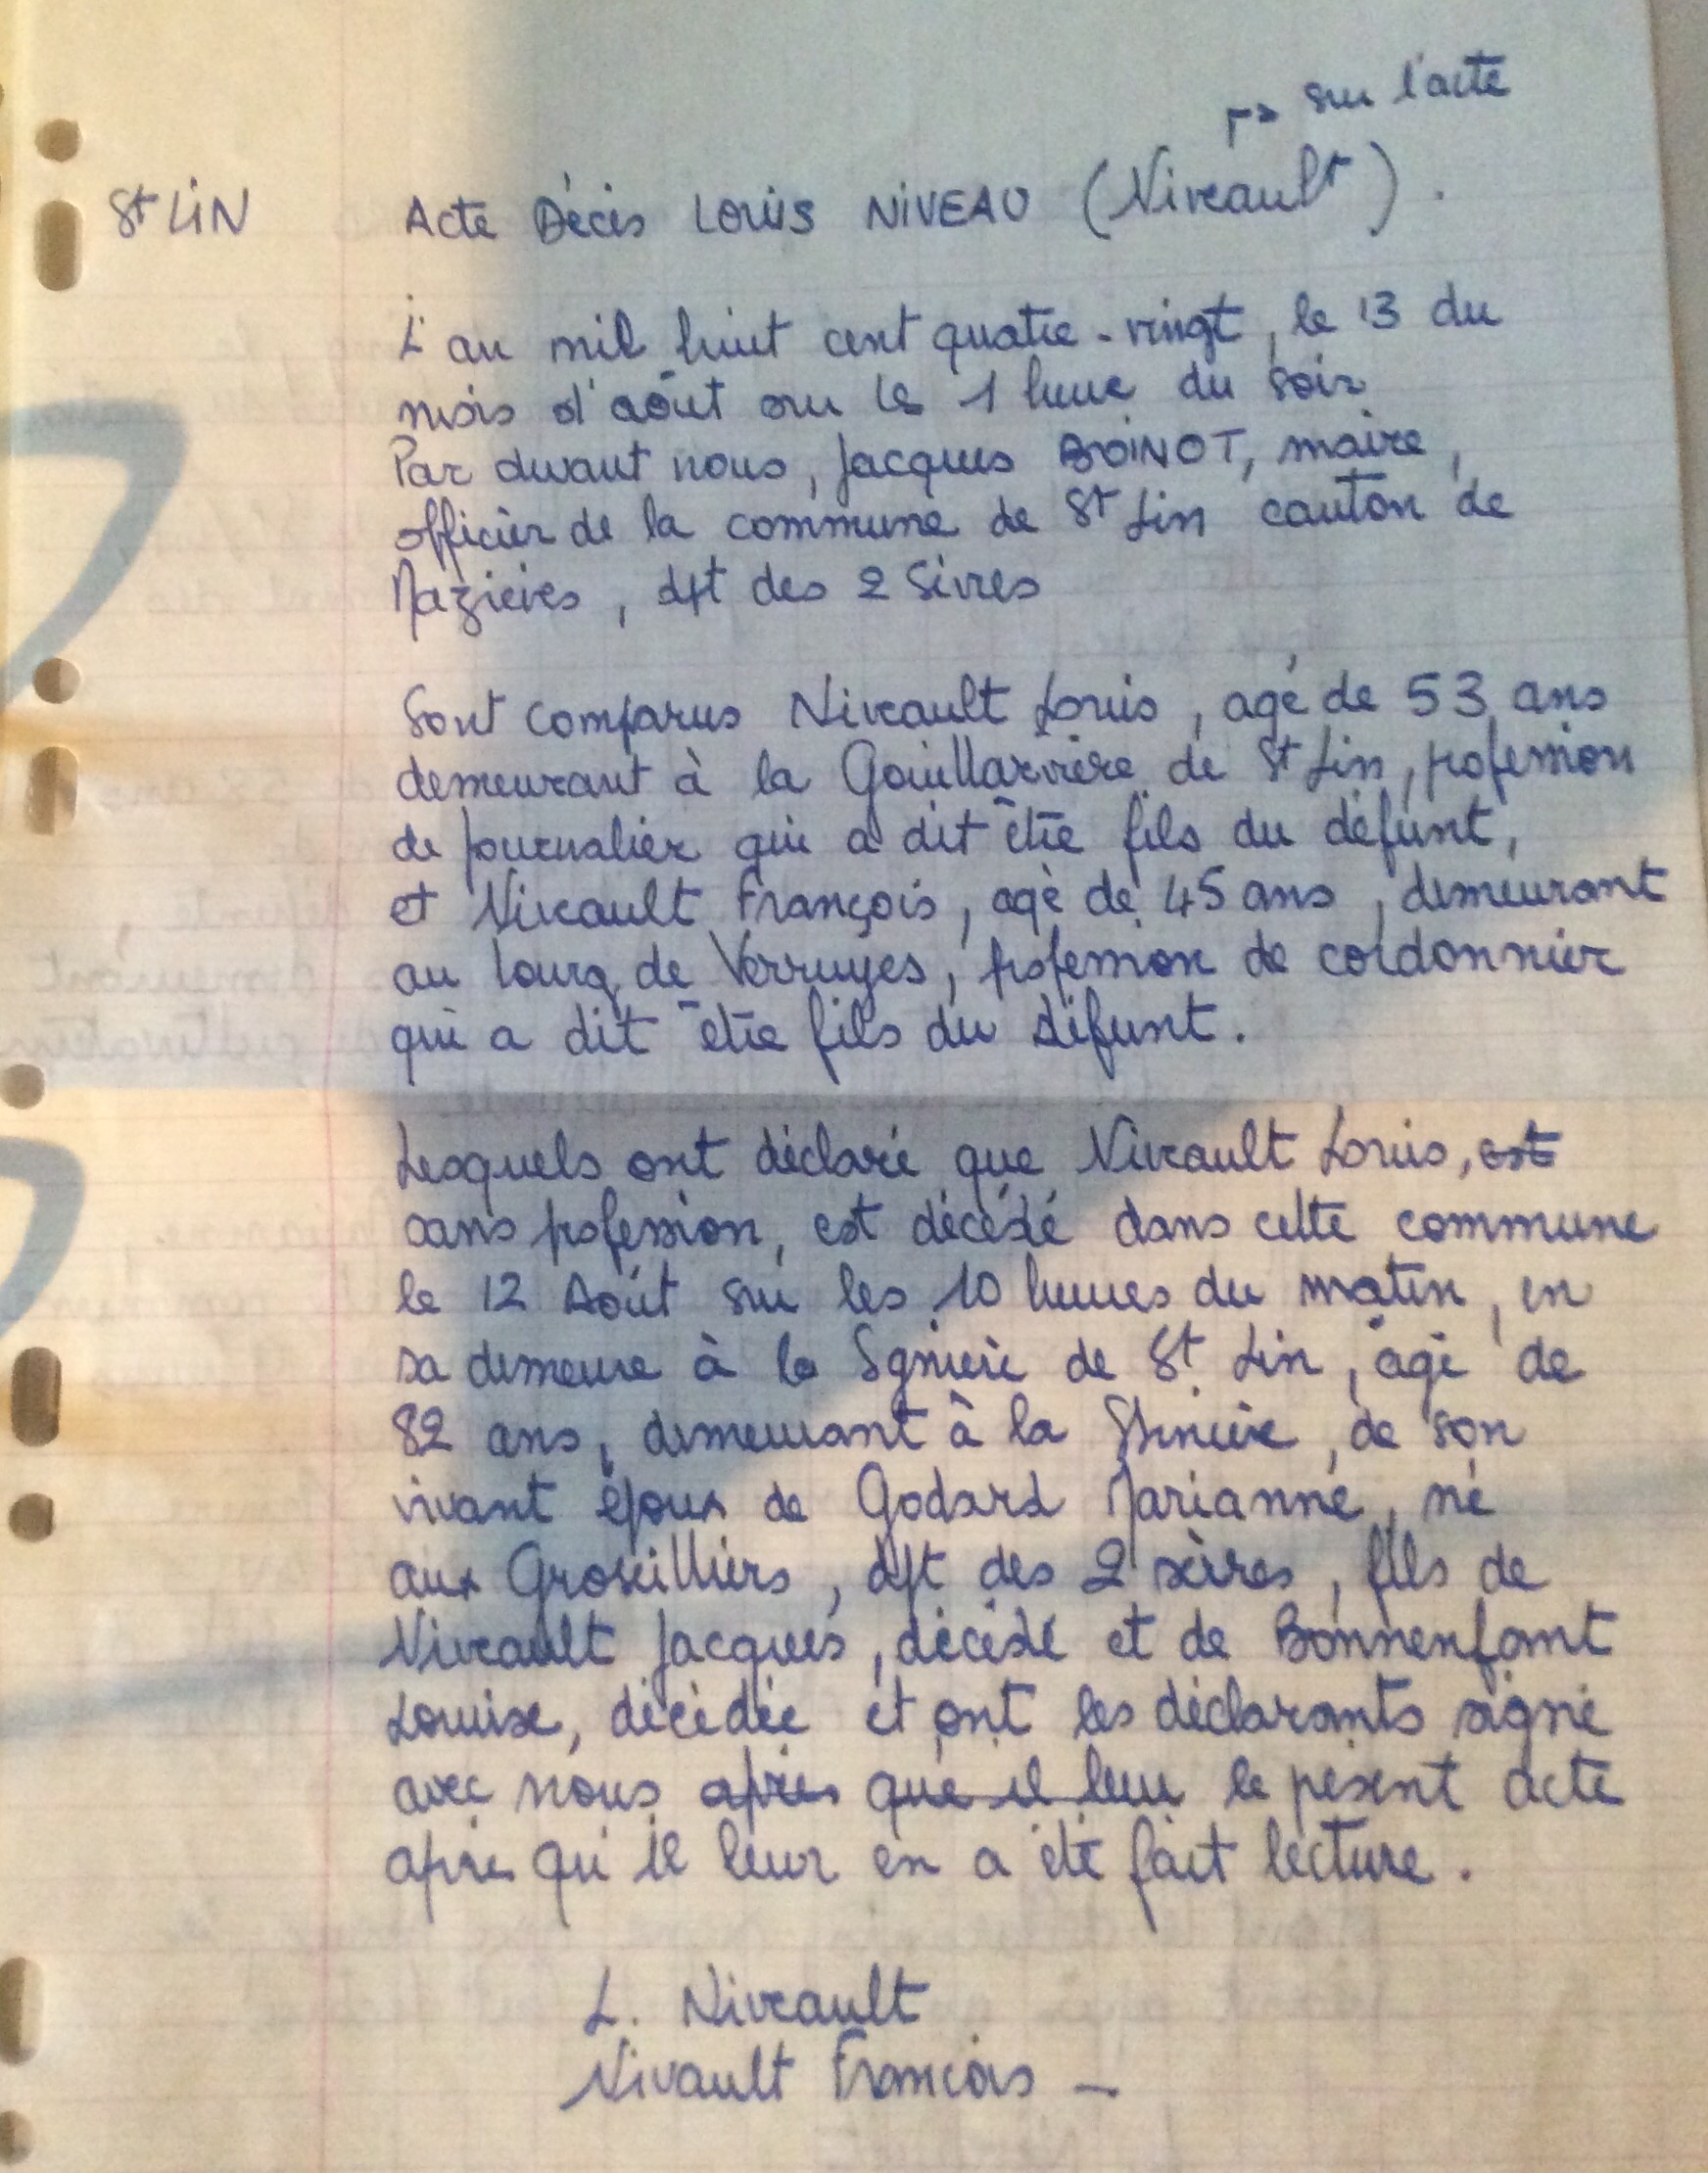 ↱ sur l'acte
St LiN Acte Décès LOUiS NiVEAU (Niveault).
L'an mil huit cent quatre-vingt, le 13 du
mois d'août sur les 1 heure du soir
Par devant nous, Jacques BOiNOT, maire,
officier de la commune de St Lin canton de
Mazières, dpt des 2 Sèvres
Sont comparus Niveault Louis, agé de 53 ans
demeurant à la Gouillarvière de St Lin, profession
de journalier qui a dit être fils du défunt,
et Niveault François, agé de 45 ans, demeurant
au bourg de Verruyes, profession de cordonnier
qui a dit être fils du défunt.
Lesquels ont déclaré que Niveault Louis, est
sans profession, est décédé dans cette commune
le 12 Août sur les 10 heures du matin, en
sa demeure à la de St Lin, agé de
82 ans, demeurant à la de son
vivant époux de Godard Marianne, né
aux Groseilliers, dpt des 2 sèvres, fils de
Niveault Jacques, décédé et de Bonnenfant
Louise, décédée et ont les déclarants signé
avec nous après que il leur le présent acte
après qu'il leur en a été fait lecture.
L. Niveault
Nivault François —